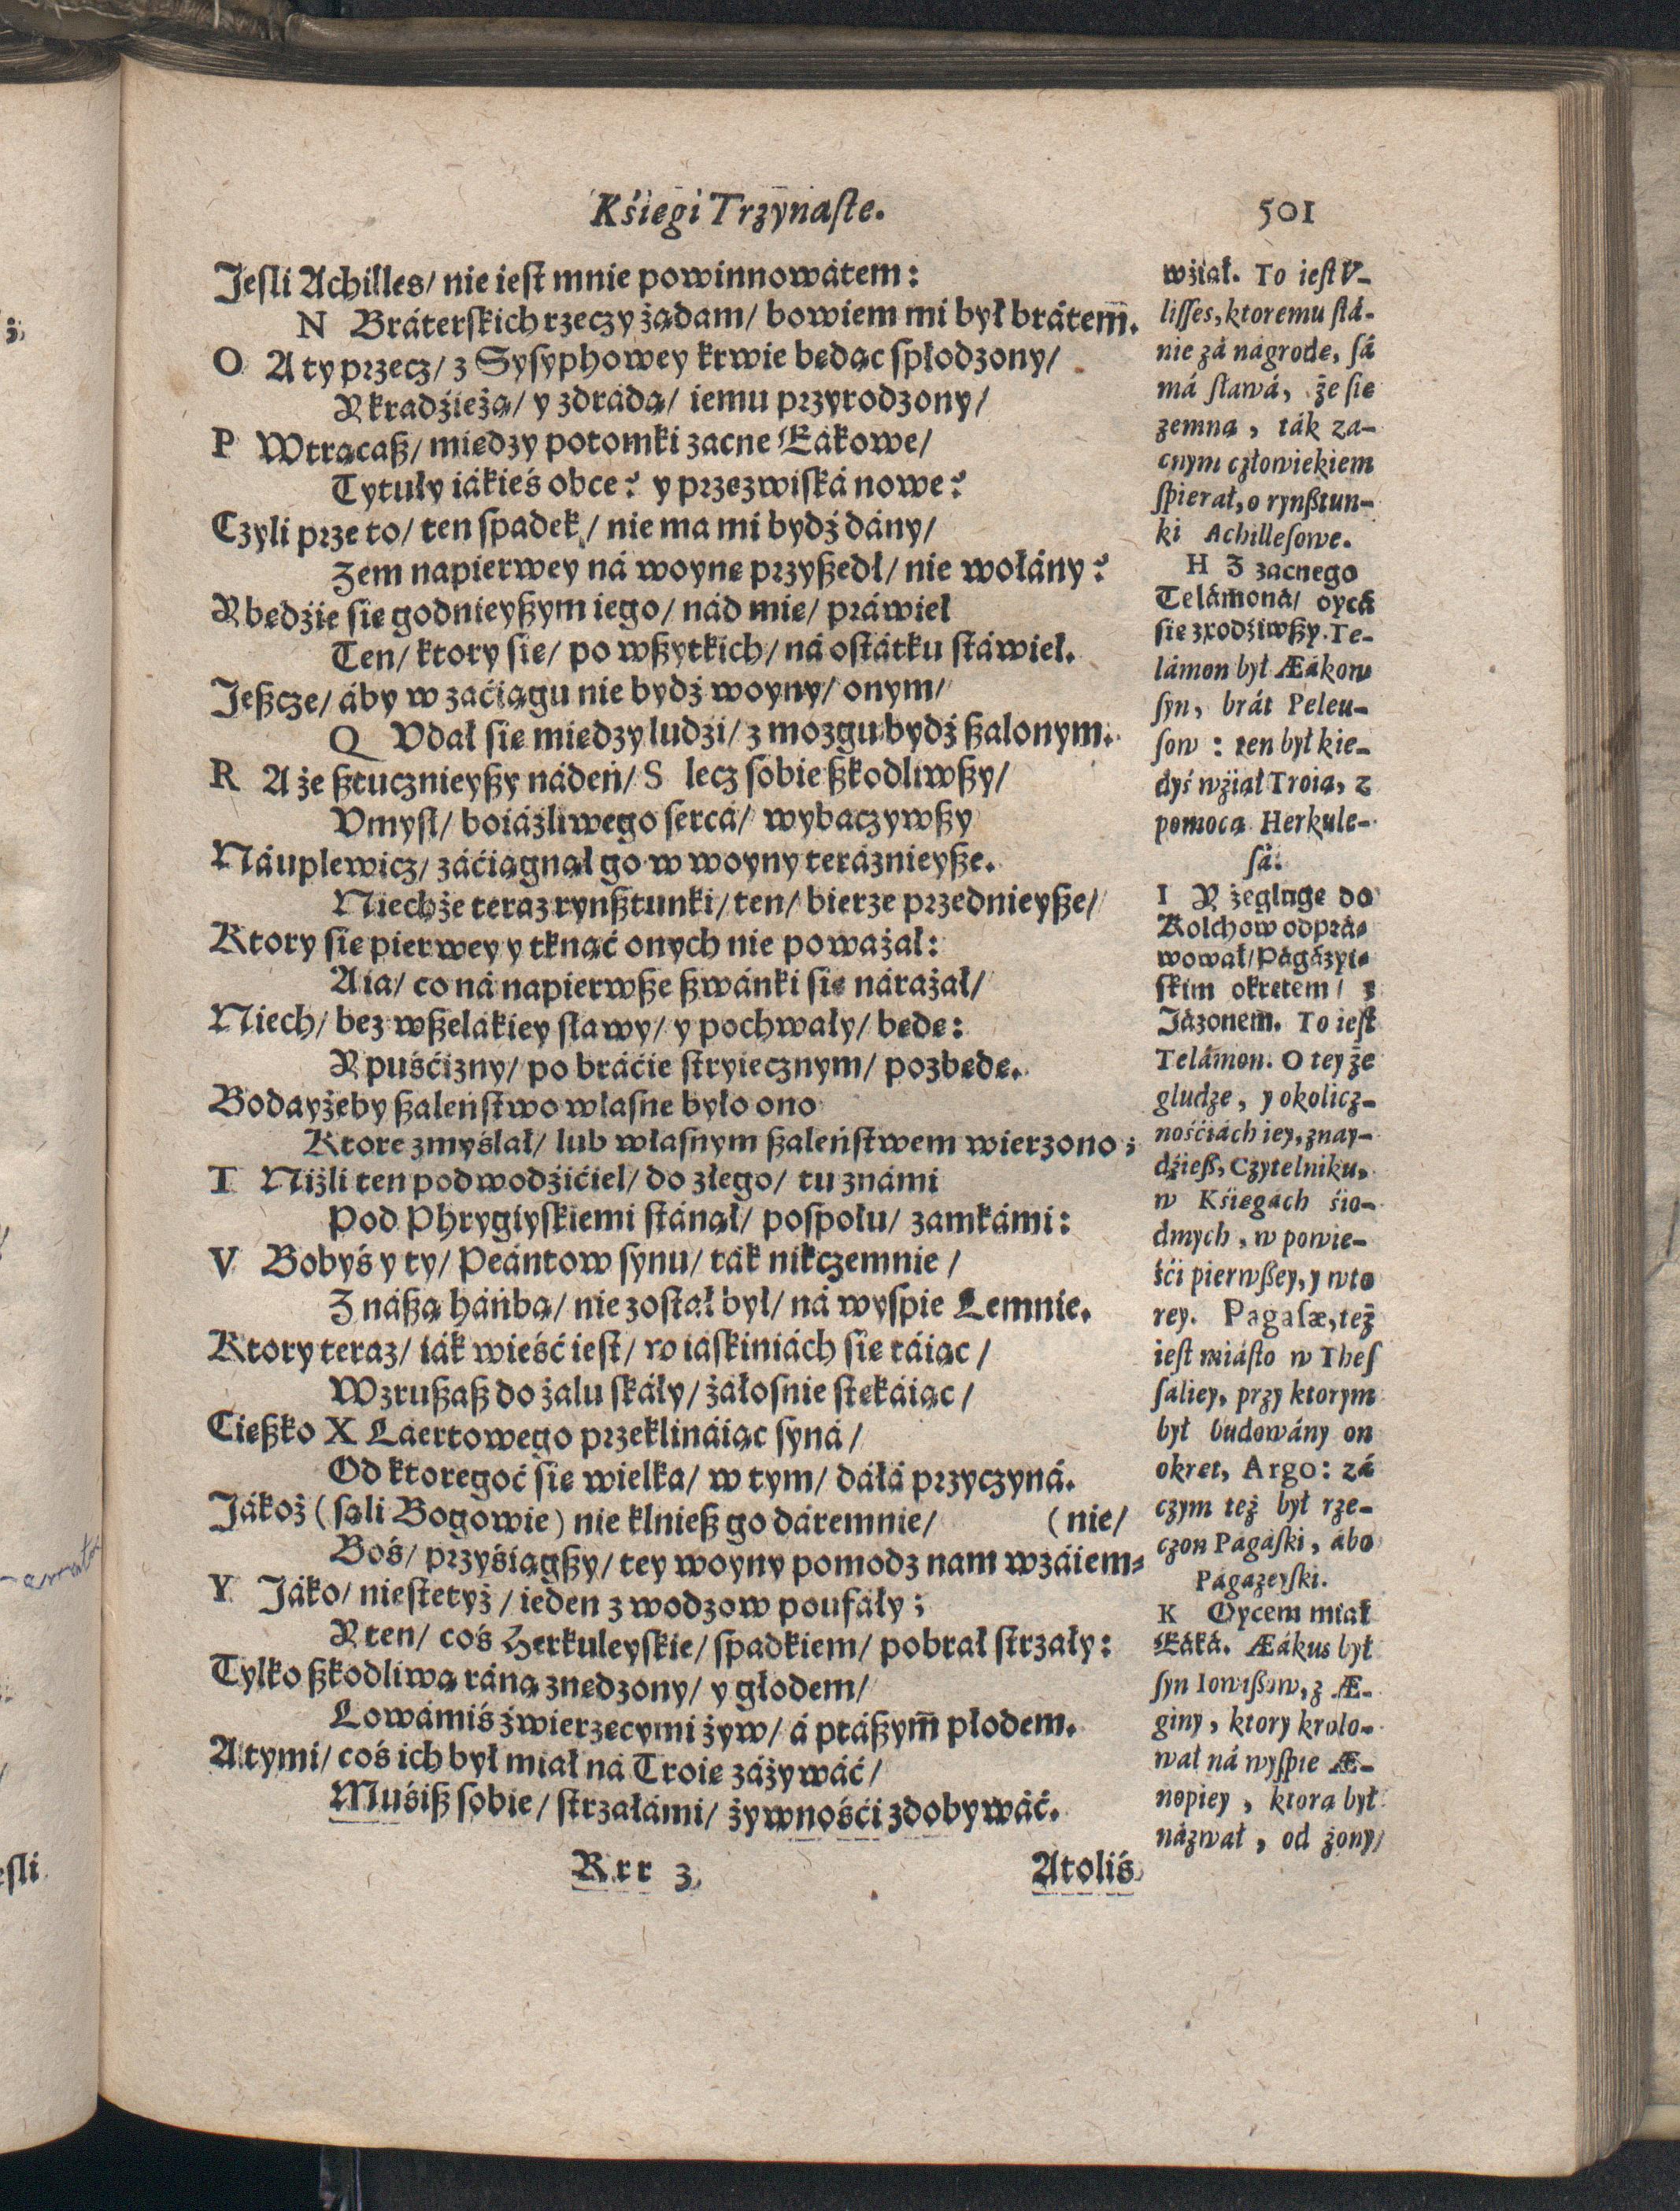 Kśiegi Trzynaſte.
501
Jeſli Achilles/ nie ieſt mnie powinnowátem:
N Bráterſkich rzeczy żądam/ bowiem mi był brátem̅.
O A ty przecz/ z Syſyphowey krwie będąc ſpłodzony/
Y kradźieżą/ y zdrádą/ iemu przyrodzony/
P Wtrącaß/ miedzy potomki zacne Eákowe/
Tytuły iákieś obce? y przezwiſká nowe?
Czyli prze to/ ten ſpadek/ nie ma mi bydź dány/
Zem napierwey ná woynę przyßedł/ nie wołány?
Y bedźie ſie godnieyßym iego/ nád mie/ práwieł
Ten/ ktory ſie/ po wßytkich/ ná oſtátku ſtáwieł.
Jeßcze/ áby w zaćiągu nie bydź woyny/ onym/
Q Vdał ſie miedzy ludźi/ z mozgu bydź ßalonym.
R A że ßtucznieyßy nádeń/ S lecz ſobie ßkodliwßy/
Vmyſł/ boiáźliwego ſercá/ wybaczywßy
Náuplewicz/ záćiągnął go w woyny teráznieyße.
Niechże teraz rynßtunki/ ten/ bierze przednieyße/
Ktory ſie pierwey y tknąć onych nie poważał:
A ia/ co ná napierwße ßwánki ſie nárażał/
Niech/ bez wßelákiey ſławy/ y pochwały/ bede:
Y puśćizny/ po bráćie ſtryiecznym/ pozbede.
Bodayżeby ßaleńſtwo właſne było ono
Ktore zmyślał/ lub właſnym ßaleńſtwem wierzono;
T Niżli ten podwodźićiel/ do złego/ tu známi
Pod Phrygiyſkiemi ſtánął/ poſpołu/ zamkámi:
V Bobyś y ty/ Peántow ſynu/ ták nikczemnie/
Z náßą háńbą/ nie zoſtał był/ ná wyſpie Lemnie.
Ktory teraz/ iák wieść ieſt/ w iáſkiniách ſie táiąc/
Wzrußaß do żalu ſkáły/ żáłoſnie ſtękáiąc/
Cießko X Láertowego przeklináiąc ſyná/
Od ktoregoć ſie wielka/ w tym/ dáłá przyczyná.
Jákoż (ſąli Bogowie) nie klnieß go dáremnie/ (nie/
Boś/ przyśiągßy/ tey woyny pomodz nam wzáiem⸗
Y Jáko/ nieſtetyż/ ieden z wodzow poufáły;
Y ten/ coś Herkuleyſkie/ ſpadkiem/ pobrał ſtrzały:
Tylko ßkodliwą ráną znędzony/ y głodem/
Lowámiś źwierzęcymi żyw/ á ptáßym̅ płodem.
A tymi/ coś ich był miał ná Troię záżywáć/
Muśiß ſobie/ ſtrzałámi/ żywnośći zdobywáć.
Rrr 3
Atoliś
wźiął. To ieſt V-
liſſes, ktoremu ſtá-
nie zá nágrodę, ſá
má ſławá, że ſie
zemną, ták za-
cnym człowiekiem
ſpierał, o rynßtun-
ki Achilleſowe.
H Z zacnego
Telámoná/ oycá
ſie zrodźiwßy. Te-
lámon był Æákow
ſyn, brát Peleu-
ſow: ten był kie-
dyś wźiął Troią, z
pomocą Herkule-
ſá.
I Y żeglugę do
Kolchow odprá⸗
wował/ Págázyi⸗
ſkim okrętem/ z
Jázonem. To ieſt
Telámon. O tey że
gludze, y okolicz-
nośćiách iey, znay-
dźieß, Czytelniku,
w Kśięgách śio-
dmych, w powie-
śći pierwßey, y wto
rey. Pagaſæ, też
ieſt miáſto w Theſ
ſáliey, przy ktorym
był budowány on
okręt, Argo: zá
czym też był rze-
czon Págáſki, ábo
Págázeyſki.
K Oycem miał
Eáká. Æákus był
ſyn Iowißow, z Æ-
giny, ktory krolo-
wał ná wyſpie Æ-
nopiey, ktorą był
názwał, od żony/